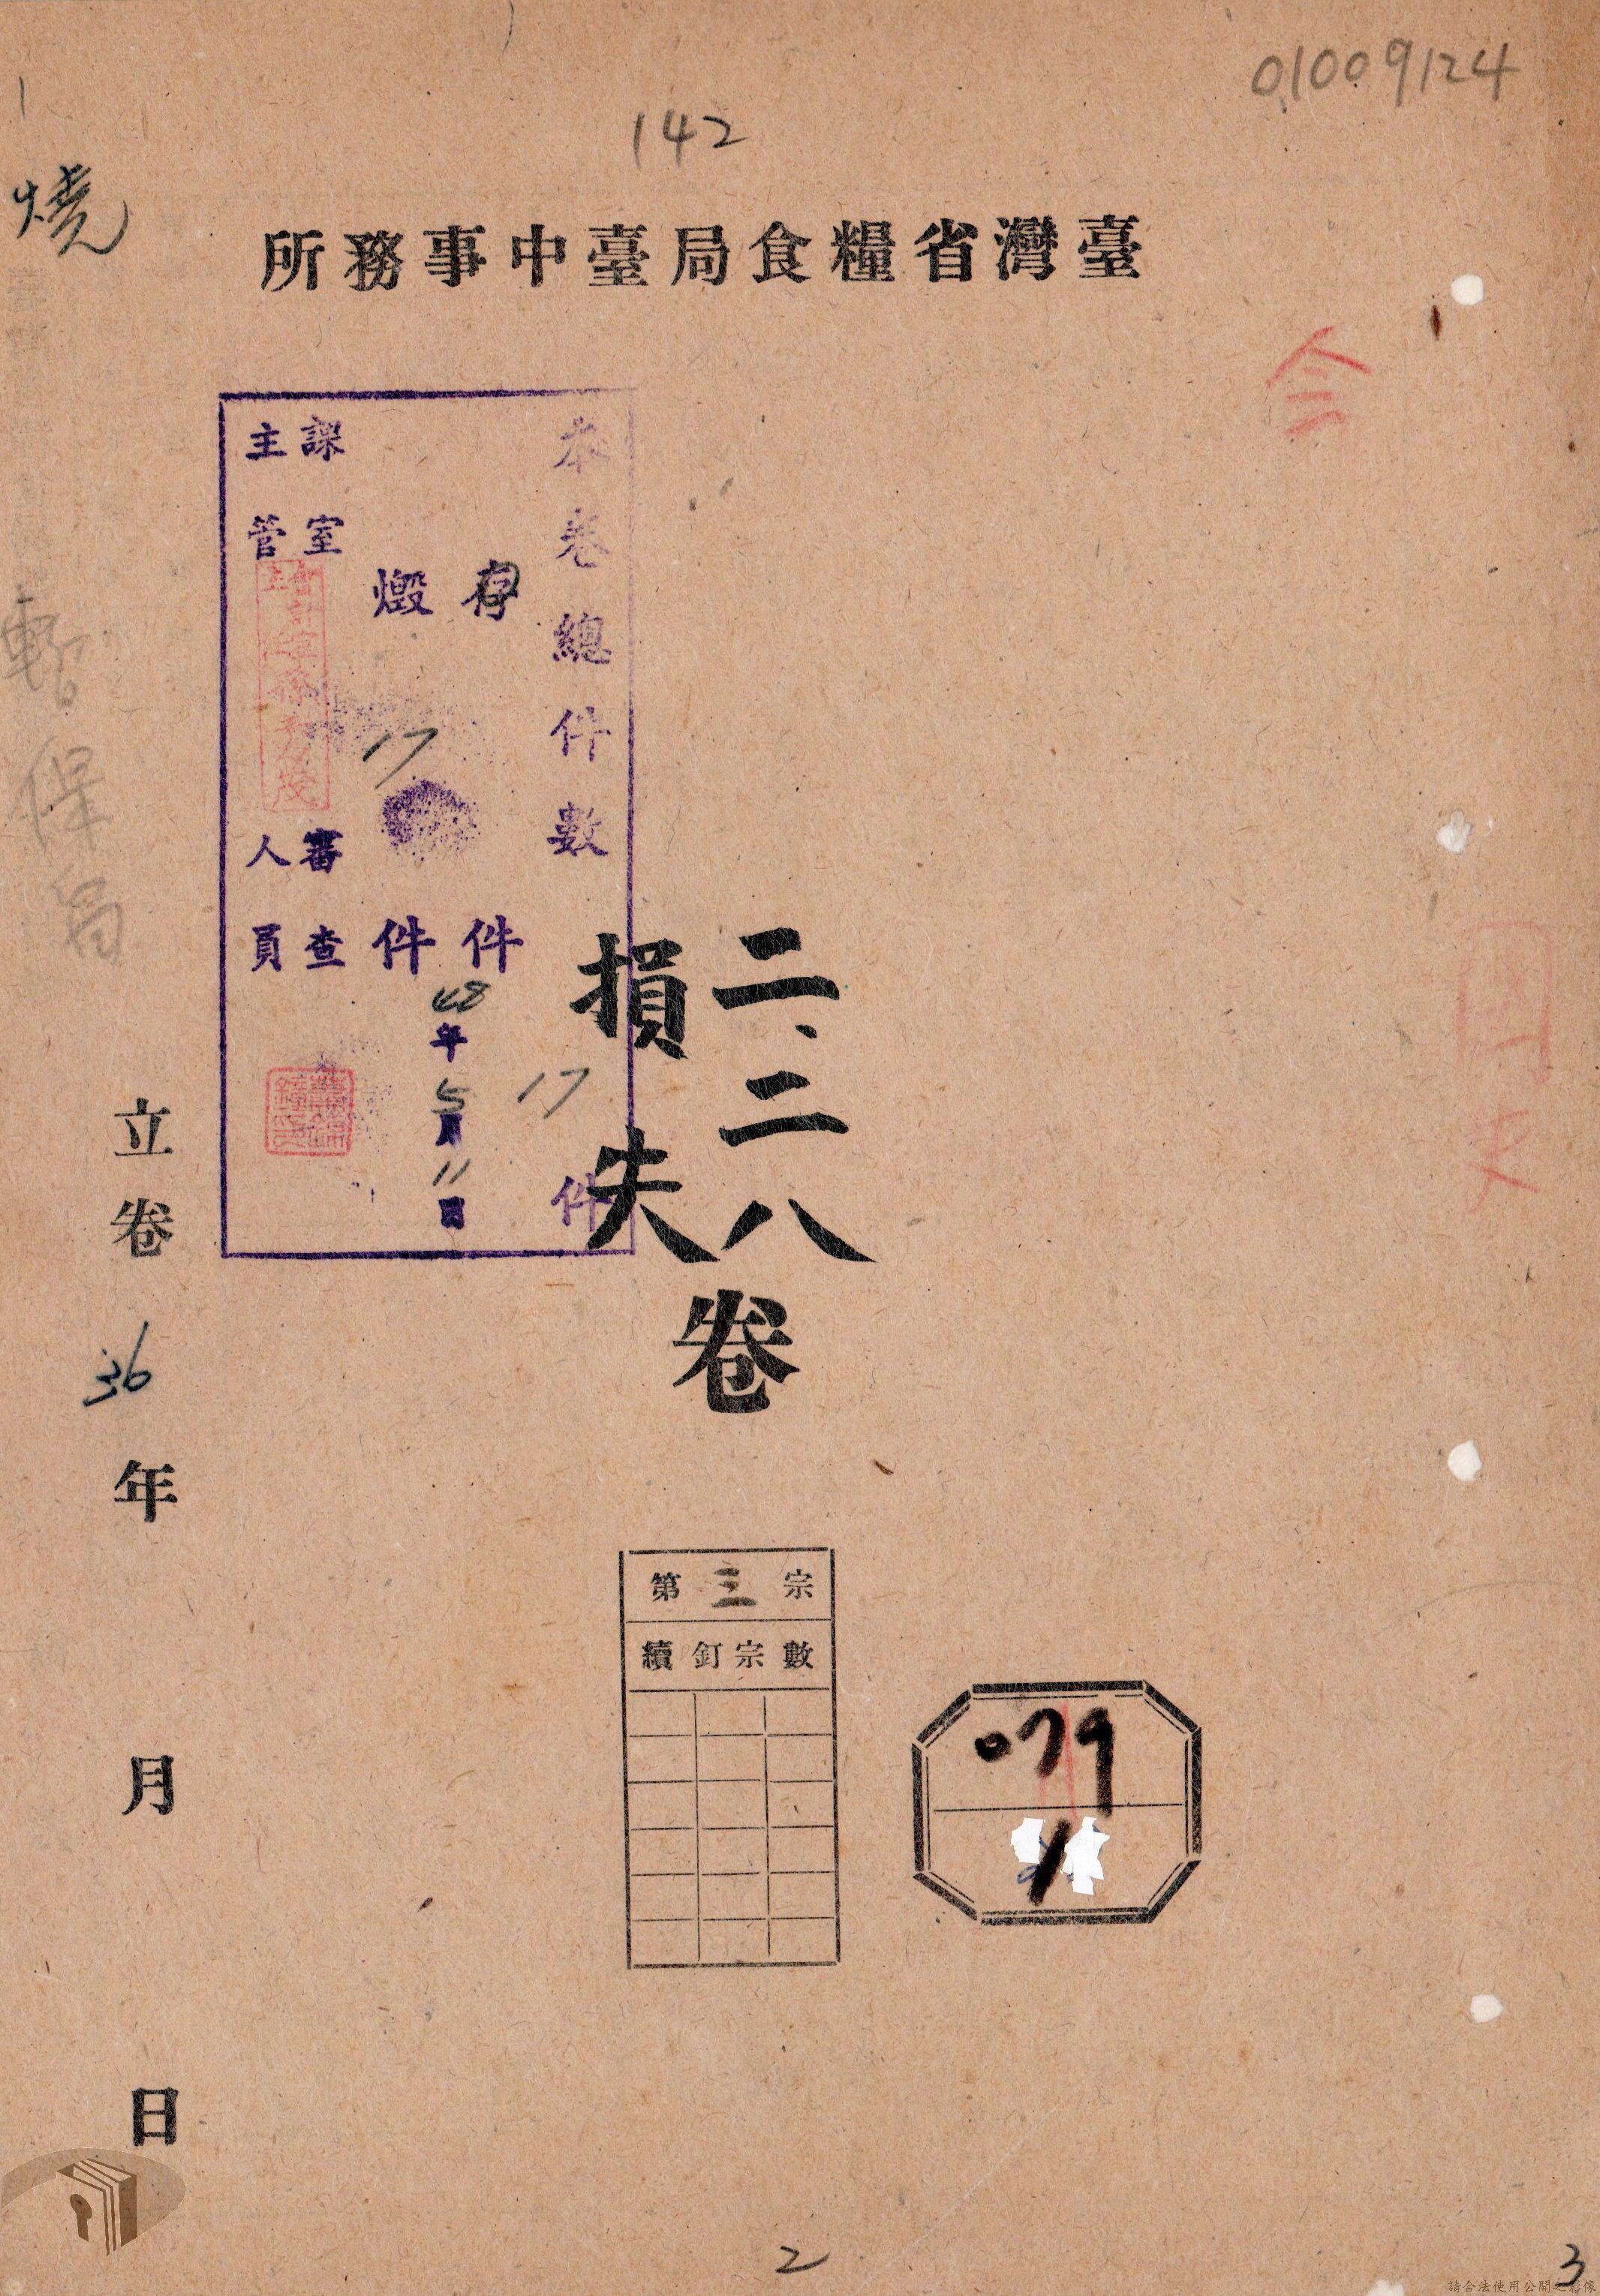 01009124
142
燒
臺灣省糧食局臺中事務所
本卷總件數 17 件
存 件
燬 17 件
48年5月11日
課室主管
審查人員
二、二八
損失
卷
立卷 36 年 月 日
第三宗
續釘宗數
079
1
2
3
請合法使用公開之影像